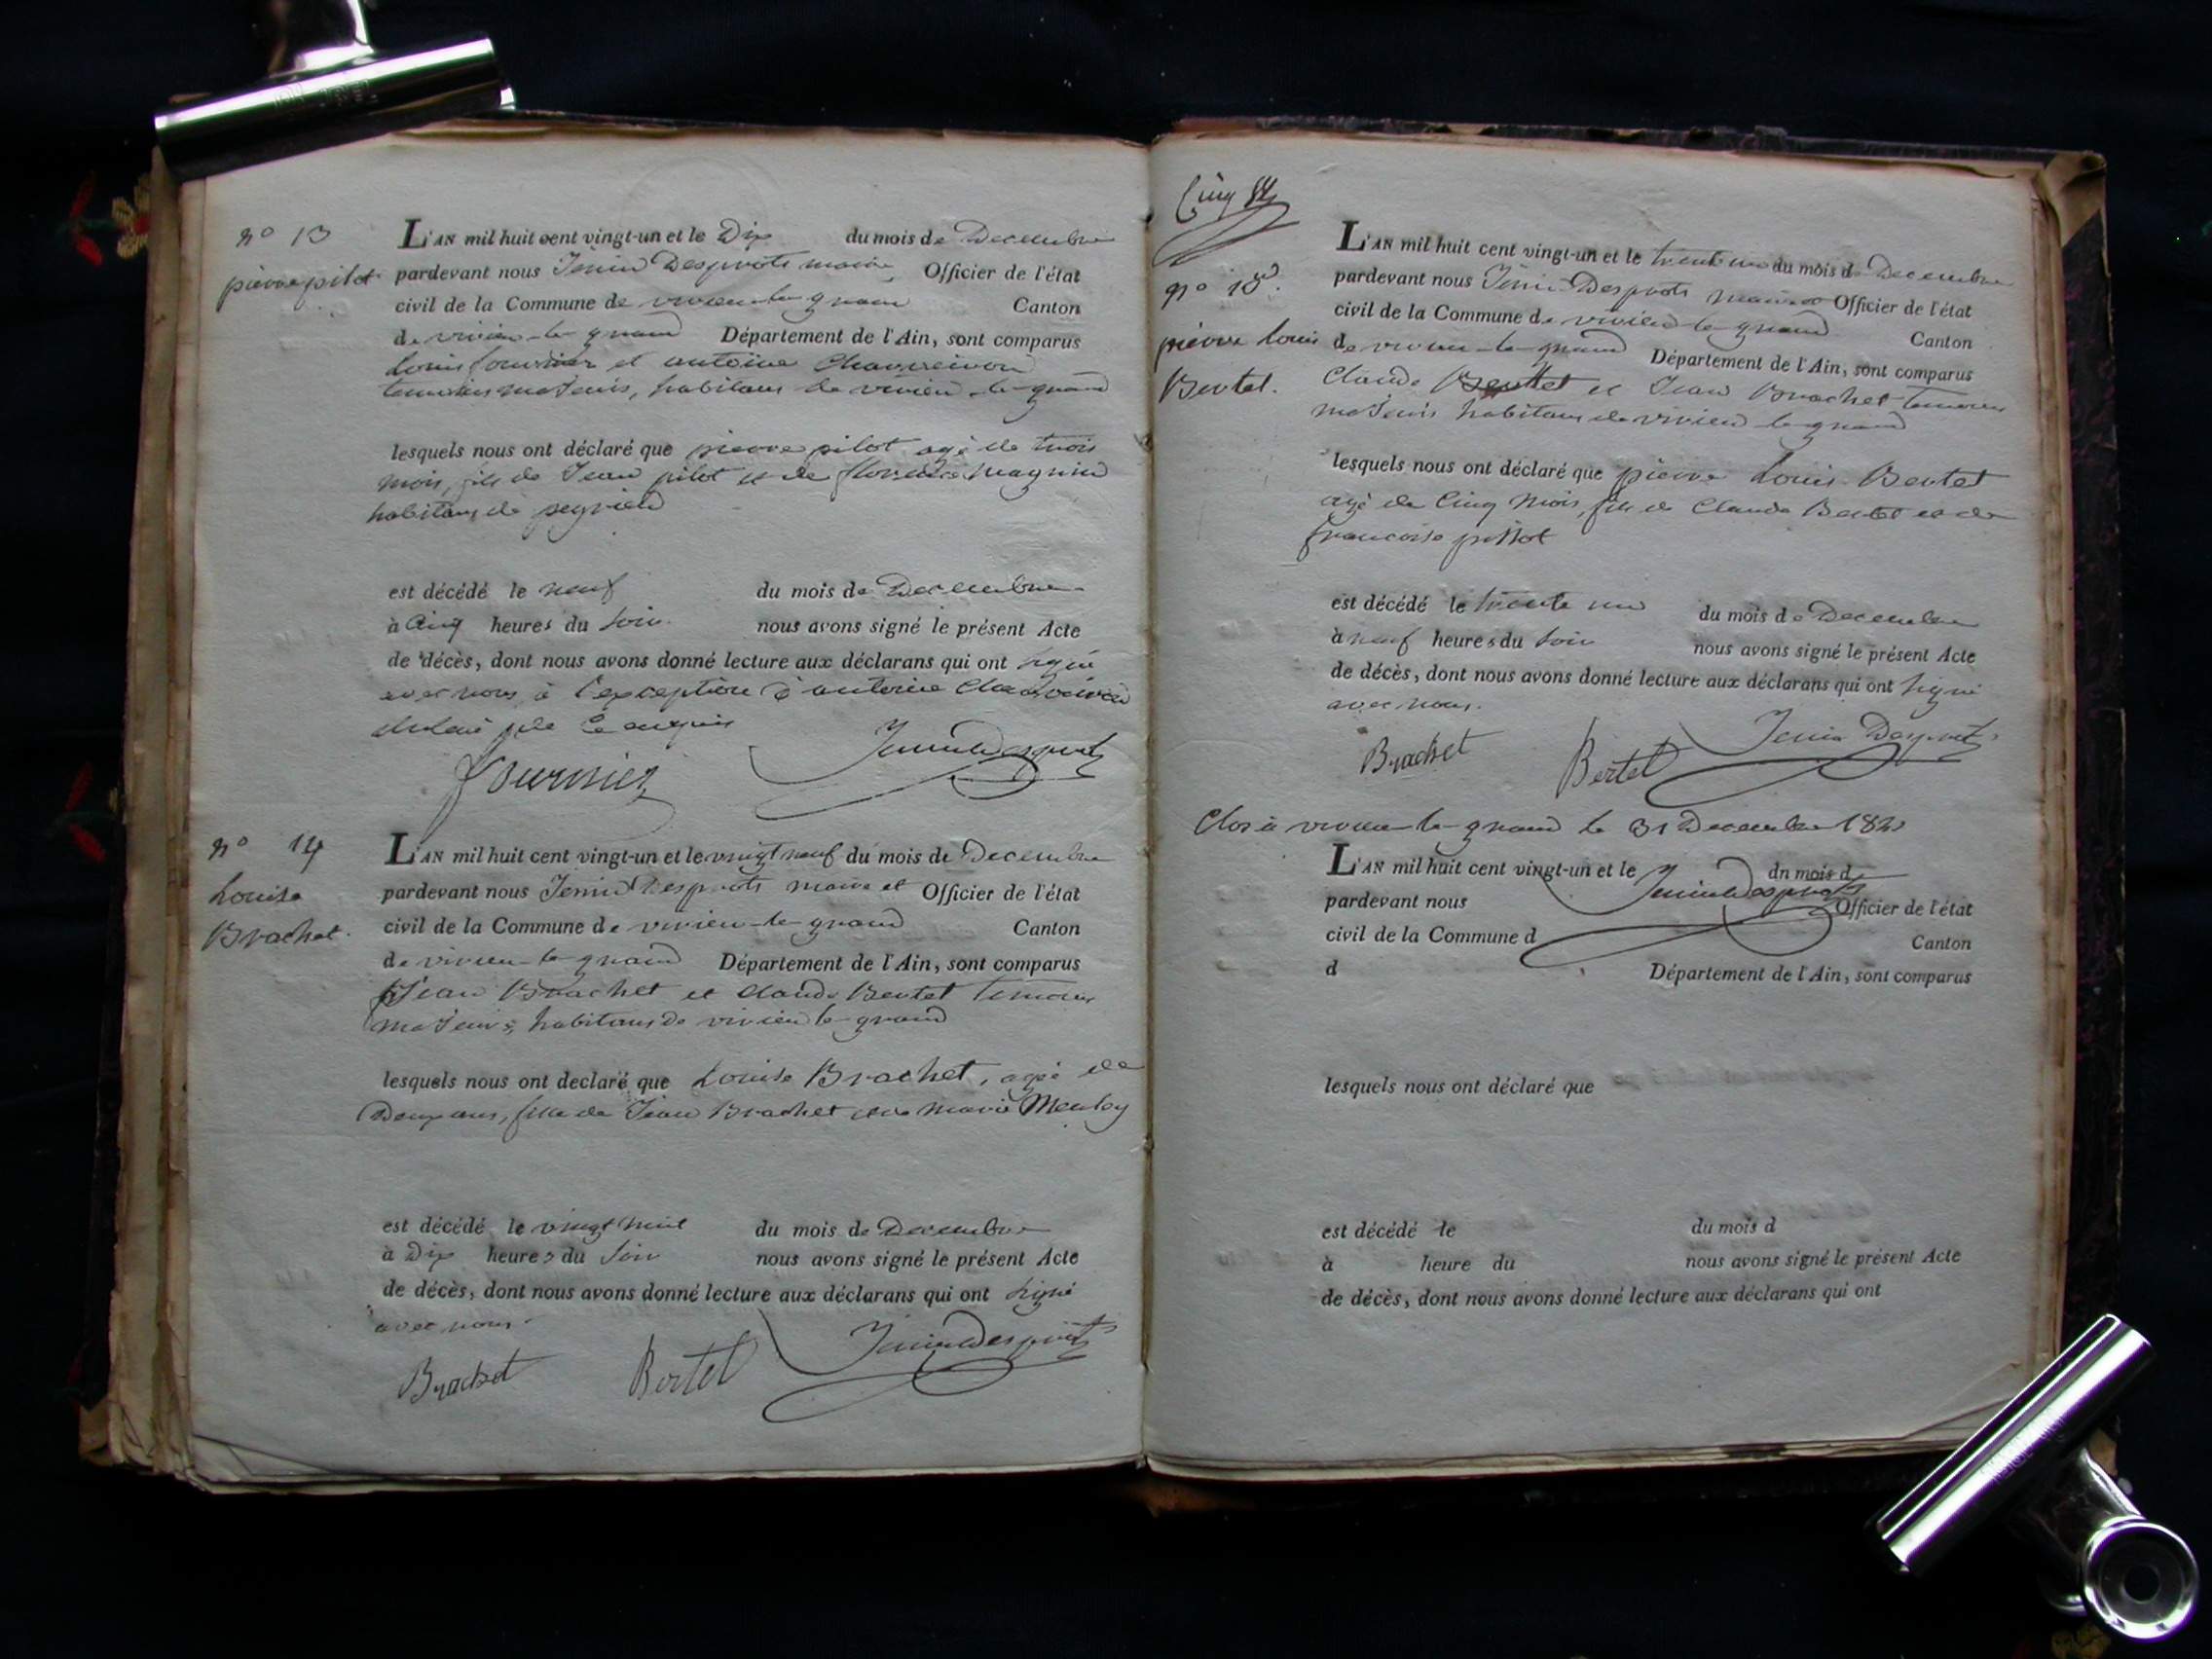 n° 13
pierre pilot
L'AN mil huit cent vingt-un et le Dix du mois de Decembre
pardevant nous Jenin Desprots maire Officier de l'état
civil de la Commune de virieu-le-grand Canton
de virieu-le-grand Département de l'Ain, sont comparus
Louis fournier et antoine
temoins majeurs, habitans de virieu-le-grand
lesquels nous ont déclaré que pierre pilot agé de trois
mois, fils de Jean pilot et de magnin
habitans de peyrieu
est décédé le neuf du mois de Decembre
à Cinq heures du soir nous avons signé le présent Acte
de décès, dont nous avons donné lecture aux déclarans qui ont signé
avec nous à l'exception d'antoine
de ce enquis
fournier Jenin Desprots
n° 14
Louise
Brachet.
L'AN mil huit cent vingt-un et le vingt neuf du mois de Decembre
pardevant nous Jenin Desprots maire et Officier de l'état
civil de la Commune de virieu-le-grand Canton
de virieu-le-grand Département de l'Ain, sont comparus
Jean Brachet et claude Bertet temoins
majeurs, habitans de virieu le grand
lesquels nous ont declaré que Louise Brachet, agée de
Deux ans, fille de Jean Brachet et de marie
est décédé le vingt huit du mois de Decembre
à Dix heures du soir nous avons signé le présent Acte
de décès, dont nous avons donné lecture aux déclarans qui ont signé
avec nous.
Brachet Bertet Jenin Desprots
Cinq
n° 15.
pierre Louis
Bertet.
L'AN mil huit cent vingt-un et le trente un du mois de Decembre
pardevant nous Jenin Desprots maire Officier de l'état
civil de la Commune de virieu-le-grand Canton
de virieu-le-grand Département de l'Ain, sont comparus
Claude Bertet et Jean Brachet temoins
majeurs habitans de virieu le grand
lesquels nous ont déclaré que pierre Louis Bertet
agé de Cinq mois, fils de Claude Bertet et de
francoise pittot
est décédé le trente un du mois de Decembre
à neuf heures du soir nous avons signé le présent Acte
de décès, dont nous avons donné lecture aux déclarans qui ont signé
avec nous.
Brachet Bertet Jenin Desprots
Clos à virieu-le-grand le 31 Decembre 1821
L'AN mil huit cent vingt-un et le Jenin Desprots du mois d
pardevant nous Officier de l'état
civil de la Commune d Canton
d Département de l'Ain, sont comparus
lesquels nous ont déclaré que
est décédé le du mois d
à heure du nous avons signé le présent Acte
de décès, dont nous avons donné lecture aux déclarans qui ont